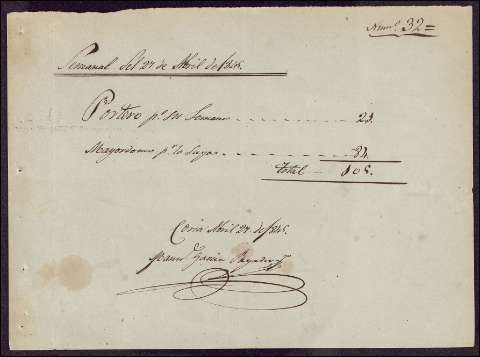 Num.º 32=
Semanal del 27 de Abril de 1846.
Portero p.r su Semana 21.
Mayordomo p.r la Suya 84.
Total 105.
Coria Abril 27 de 1846.
Juan Garcia